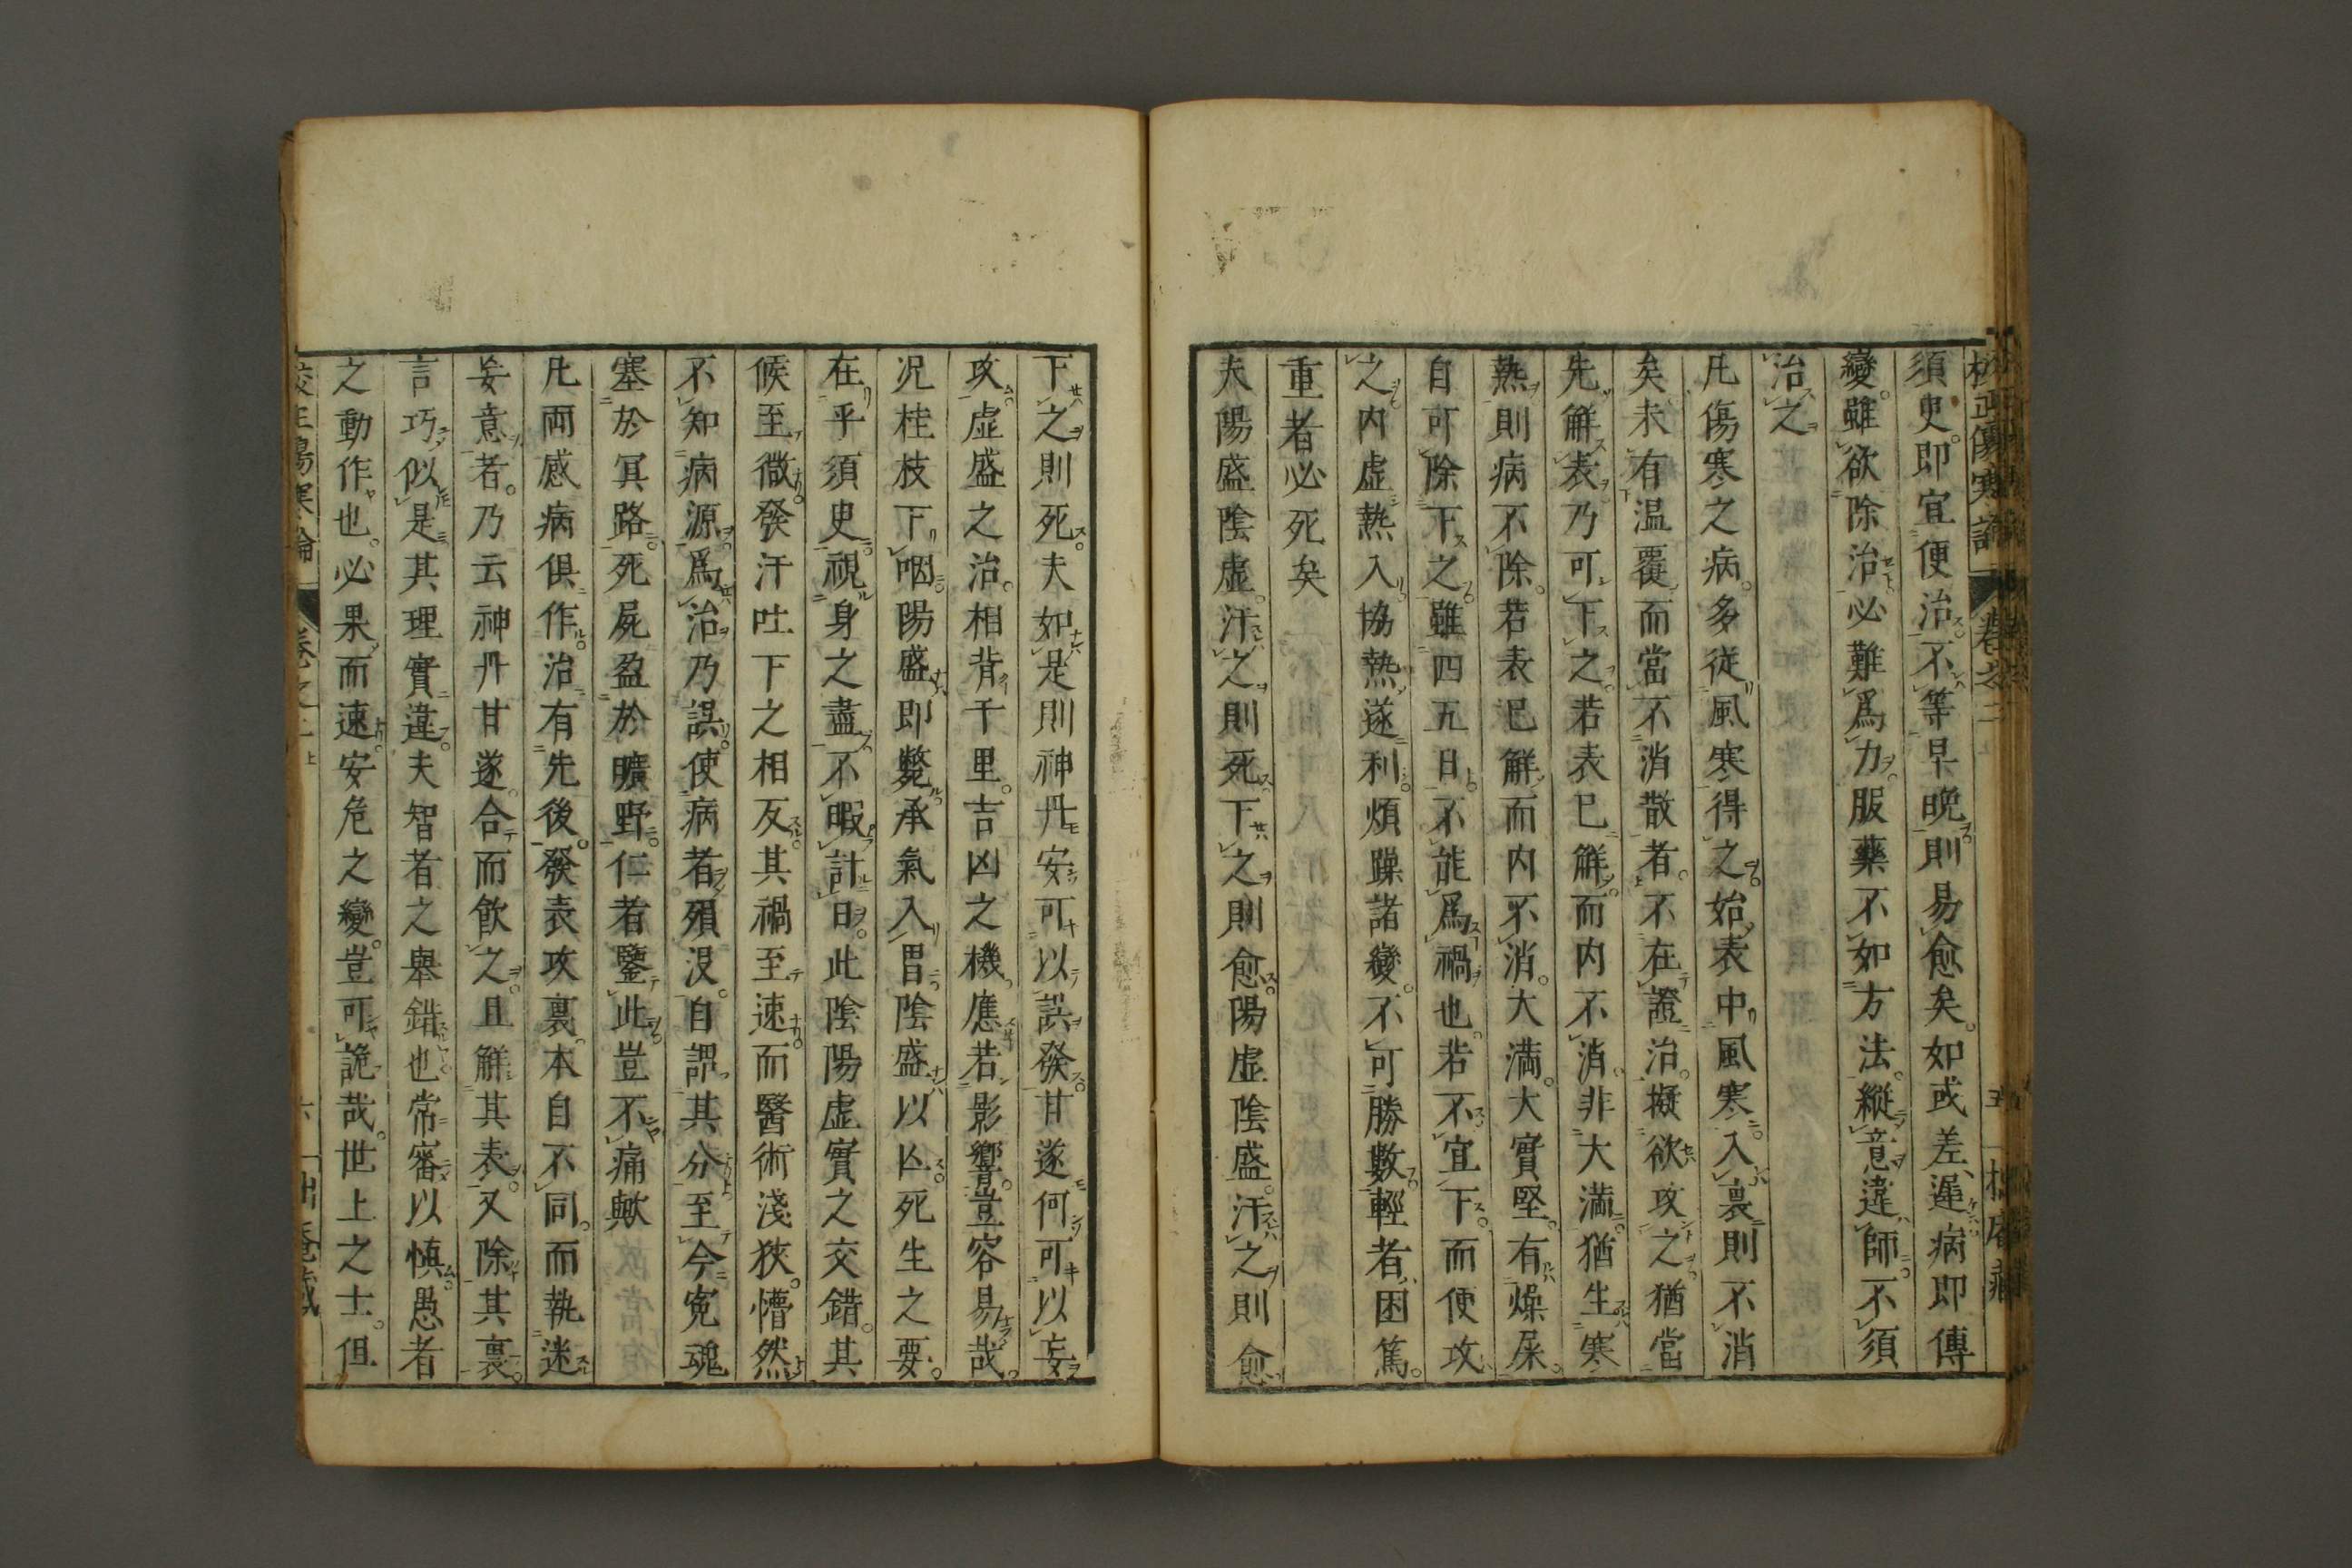 須臾即宜便治不等早晚則易愈矣如或差遲病即傳
變雖欲除治必難爲力服藥不如方法縱意違師不須
治之
凡傷寒之病多從風寒得之始表中風寒入裏則不消
矣未有温覆而當不消散者不在證治擬欲攻之猶當
先解表乃可下之若表已解而内不消非大滿猶生寒
熱則病不除若表已解而内不消大滿大實堅有燥屎
自可除下之雖四五日不能爲禍也若不宜下而便攻
之内虛熱入協熱遂利煩躁諸變不可勝數輕者困篤
重者必死矣
夫陽盛陰虛汗之則死下之則愈陽虛陰盛汗之則愈
下之則死夫如是則神丹安可以誤發甘遂何可以妄
攻虛盛之治相背千里吉凶之機應若影響豈容易哉
況桂枝下咽陽盛即斃承氣入胃陰盛以亡死生之要
在乎須臾視身之盡不暇計日此陰陽虛實之交錯其
候至微發汗吐下之相反其禍至速而醫術淺狹懵然
不知病源爲治乃誤使病者殞没自謂其分至今寃魂
塞於冥路死屍盈於曠野仁者鑒此豈不痛歟
凡兩感病俱作治有先後發表攻裏本自不同而執迷
妄意者乃云神丹甘遂合而飲之且解其表又除其裏
言巧似是其理實違夫智者之舉錯也常審以慎愚者
之動作也必果而速安危之變豈可詭哉世上之士但